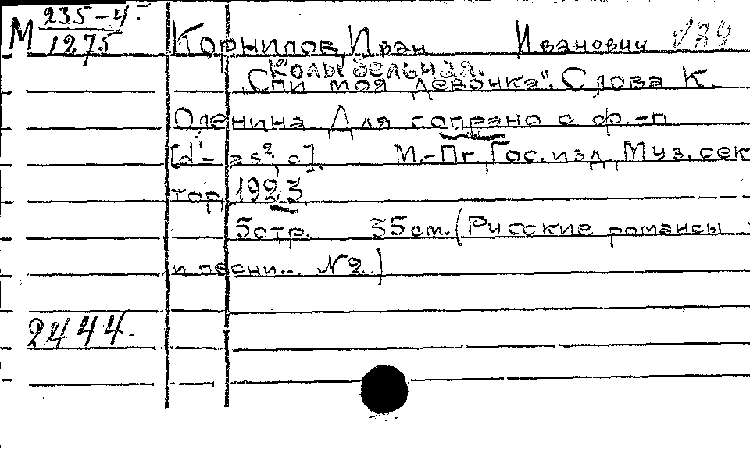 М 235-4
1275
Корнилов, Иван Иванович
Колыбельная.
"Спи моя девочка". Слова К.
Оленина Для сопрано с ф.-п.
[d¹- as², c]. М.-Пг, Гос. изд. Муз. сек
тор, 1923
5 стр. 35 см. (Русские романсы
и песни... №2.)
2444.